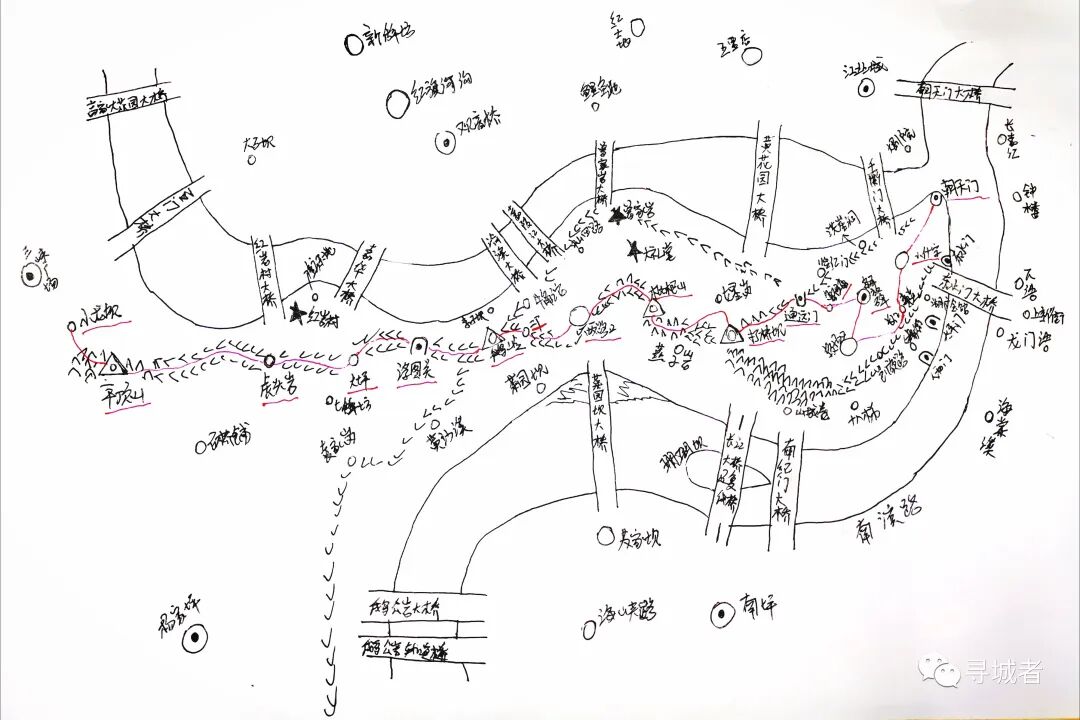 新牌坊
红土地
五里店
江北城
朝天门大桥
高家花园大桥
红旗河沟
鲤鱼池
观音桥
大石坝
石门大桥
曾家岩大桥
黄花园大桥
千厮门大桥
大剧院
长嘉汇
钟楼
朝天门
嘉华大桥
红岩村大桥
红岩村
曾家岩
大礼堂
洪崖洞
临江门
小什字
东水门大桥
上新街
龙门浩
小龙坎
平顶山
袁家岗
大坪
七牌坊
浮图关
鹅岭
两路口
枇杷山
七星岗
通远门
解放碑
较场口
打枪坝
菜园坝
菜园坝大桥
石桥铺
黄沙溪
山城巷
十八梯
珊瑚坝
长江大桥
复线桥
南纪门大桥
南滨路
海棠溪
吴家坝
杨家坪
鹅公岩大桥
鹅公岩轨道桥
海峡路
南坪
寻城者